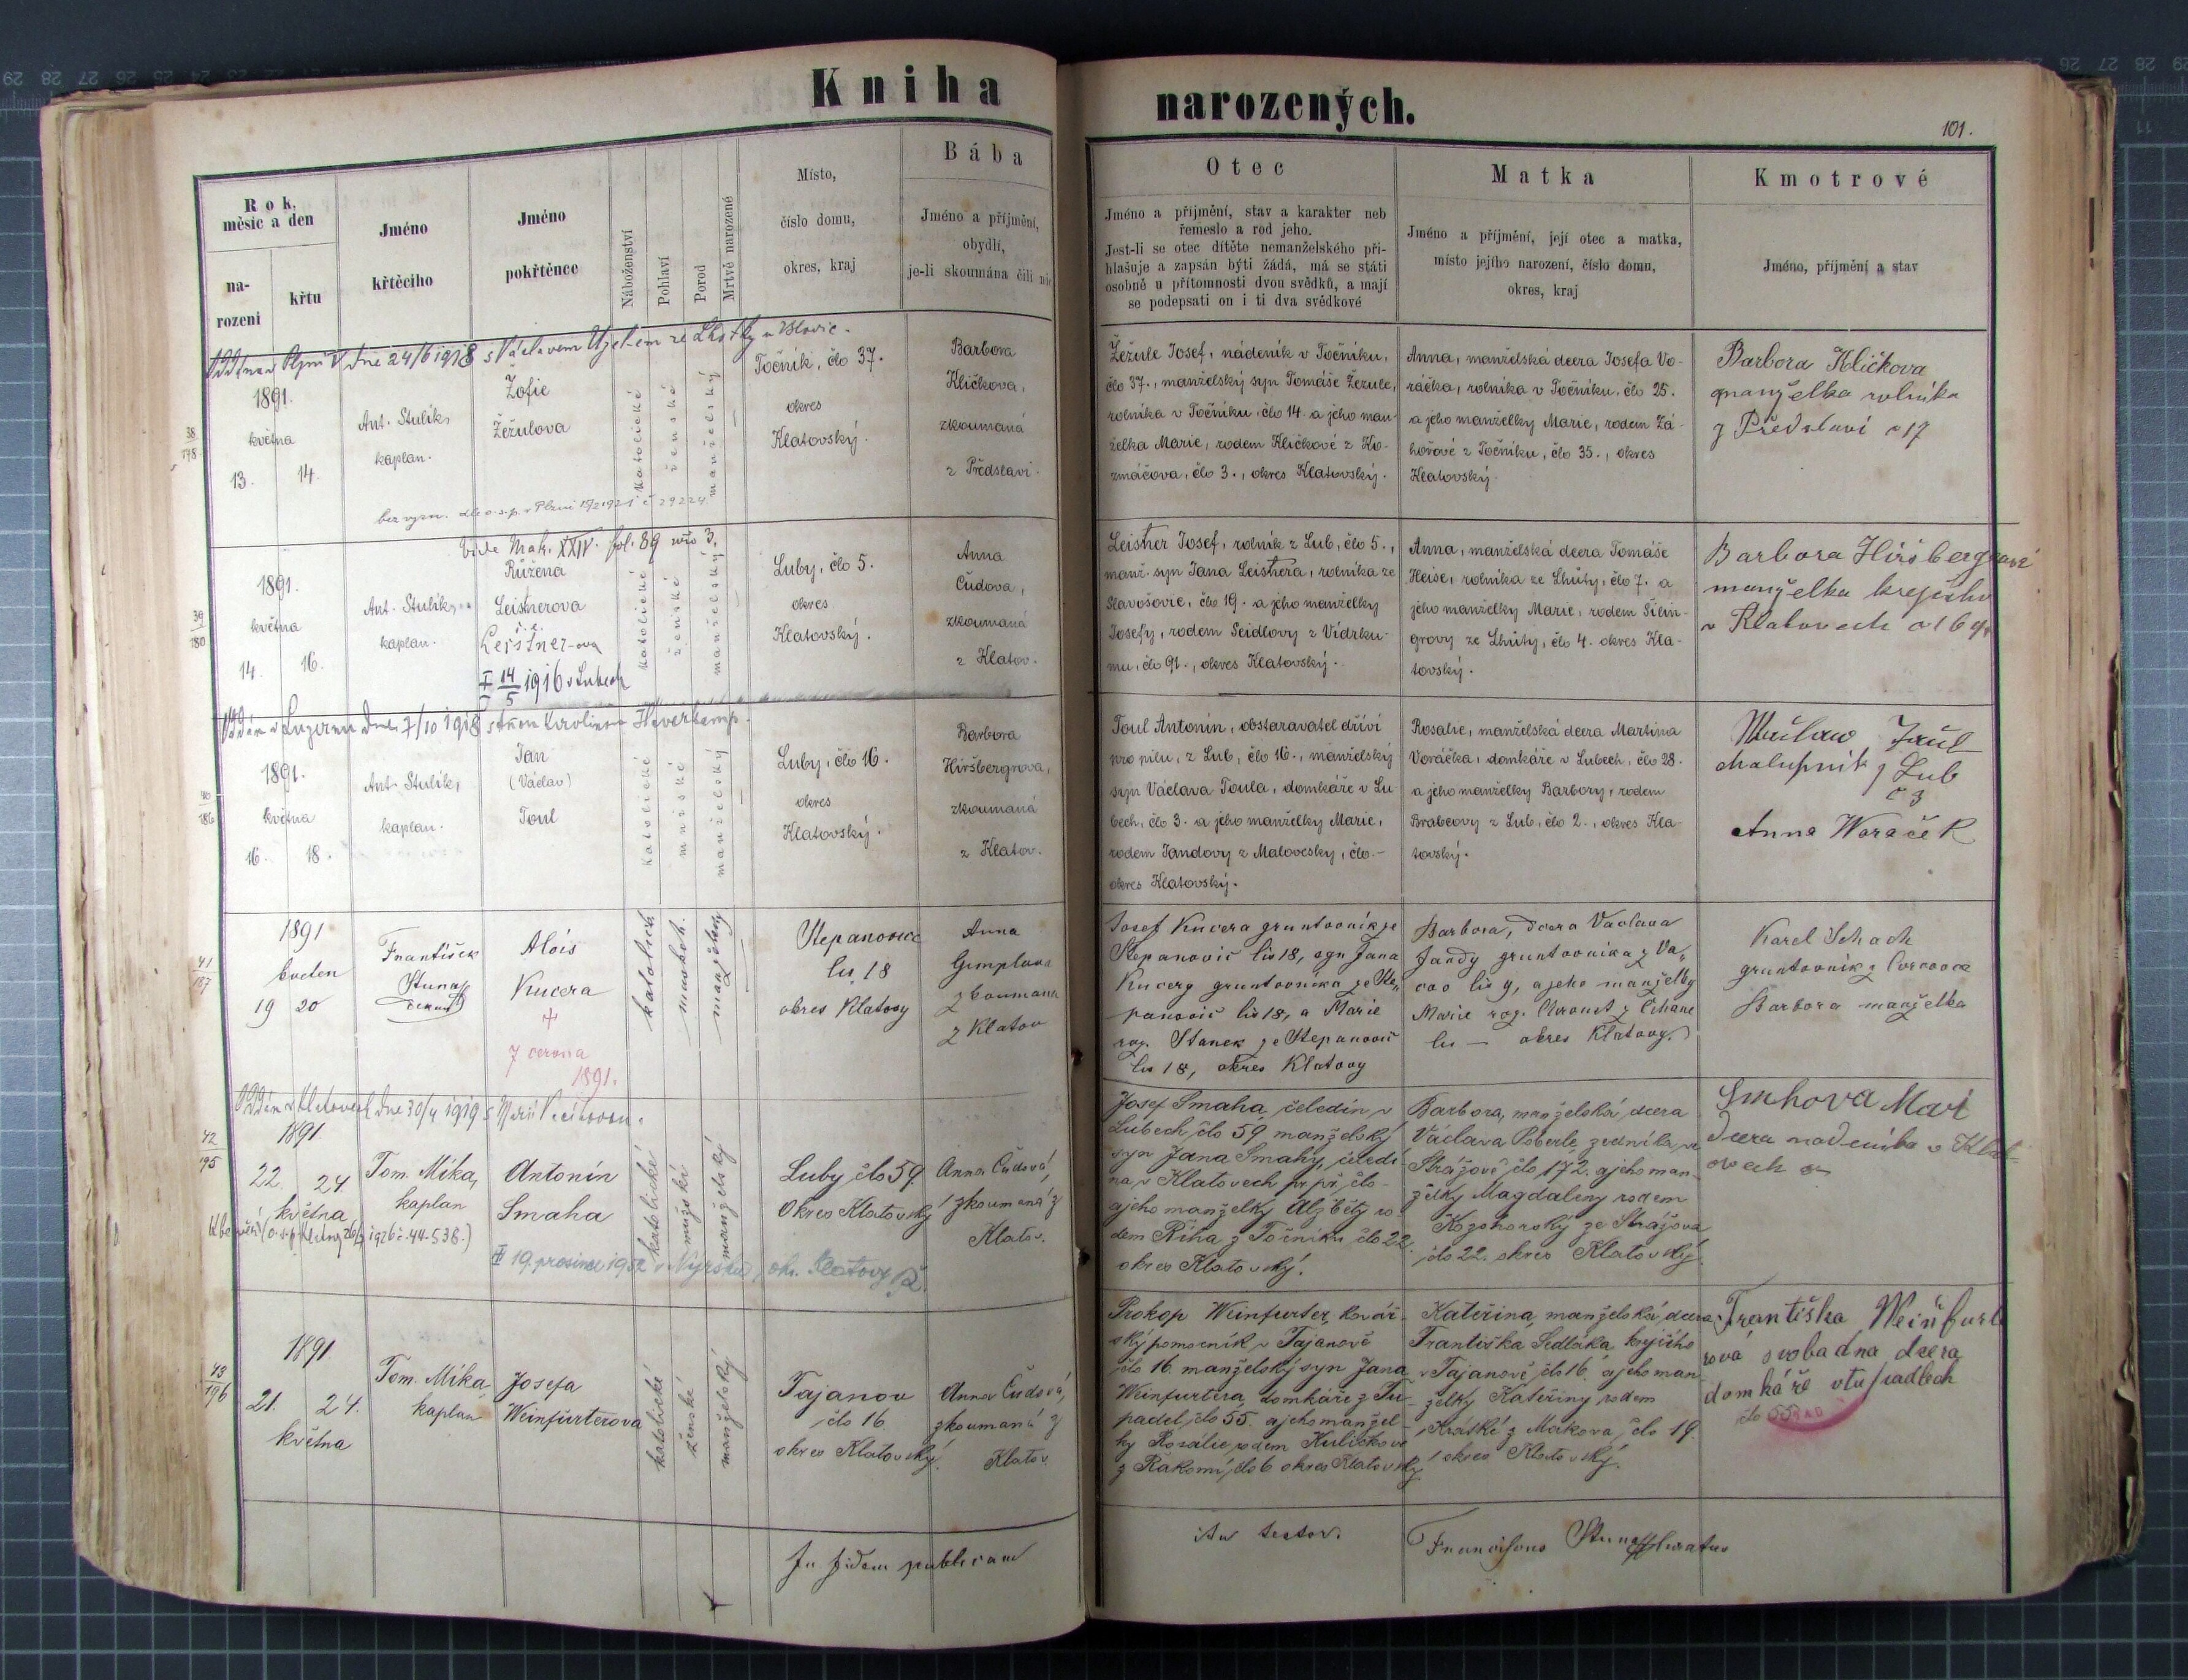 Kniha
narozených.
101.
Rok,
měsíc a den
na-
rozeni
křtu
Jméno
křtěcího
Jméno
pokřtěnce
Náboženství
Pohlaví
Porod
Mrtvě narozené
Místo,
číslo domu,
okres, kraj
Bába
Jméno a příjmění,
obydlí,
je-li skoumána čili nic
Otec
Jméno a přijmění, stav a karakter neb
řemeslo a rod jeho.
Jest-li se otec dítěte nemanželského při-
hlašuje a zapsán býti žádá, má se státi
osobně u přítomnosti dvou svědků, a mají
se podepsati on i ti dva svědkové
Matka
Jméno a příjmění, její otec a matka,
místo jejího narození, číslo domu,
okres, kraj
Kmotrové
Jméno, příjmění a stav
dne 24/6 1918 s Václavem
38
178
1891.
května
13. 14.
Ant. Stulík,
kaplan.
Žofie
Žežulova
katolické
ženské
manželský
Točník, čło 37.
okres
Klatovský.
Barbora
Kličkova,
zkoumaná
z Předslavi.
Žežule Josef, nádeník v Točníku,
čło 37., manželský syn Tomáše Žežule,
rolníka v Točníku čło 14. a jeho man-
želka Marie, rodem Kličkové z Ko-
zmáčova, čło 3., okres Klatovský.
Anna, manželská dcera Josefa Vo-
ráčka, rolníka v Točníku čło 25.
a jeho manželky Marie, rodem Zá-
hořové z Točníku, čło 35., okres
Klatovský.
Barbora Kličkova
manželka rolníka
z Předslaví č 17
39
180
vide Matr. XXIV. fol. 89
1891.
května
14. 16.
Ant. Stulík,
kaplan.
Růžena
Leisnerova
i. e.
Leistner-ova
14/5 1916 v Lubech
katolické
ženské
manželský
Luby, čło 5.
okres
Klatovský.
Anna
Čudova,
zkoumaná
z Klatov.
Leistner Josef, rolník z Lub, čło 5.,
manž. syn Jana Leistnera, rolníka ze
Slavošovic, čło 19. a jeho manželky
Josefy, rodem Seidlovy z Vidrku-
mu, čło 91., okres Klatovský.
Anna, manželská dcera Tomáše
Heise, rolníka ze Lhůty, čło 7. a
jeho manželky Marie, rodem Šilin-
grovy ze Lhůty, čło 4. okres Kla-
tovský.
Barbora Hiršbergrová
manželka krejčího
v Klatovech č 169
dne 7/10 1918
40
186
1891.
května
16. 18.
Ant. Stulík,
kaplan.
Jan
(Václav)
Toul
katolické
mužské
manželský
Luby, čło 16.
okres
Klatovský.
Barbora
Hiršbergrova,
zkoumaná
z Klatov.
Toul Antonín, obstaravatel dříví
pro pilu, z Lub, čło 16., manželský
syn Václava Toula, domkáře v Lu-
bech, čło 3. a jeho manželky Marie,
rodem Jandovy z Malovesky, čło. -
okres Klatovský.
Rosalie, manželská dcera Martina
Voráčka, domkáře v Lubech, čło 28.
a jeho manželky Barbory, rodem
Brabcovy z Lub, čło 2., okres Kla-
tovský.
Toul
chalupník z Lub
č 3
Anna Woraček
41
187
1891
květen
19 20
František
Stunap
děkan
Alois
Kucera
7 cervna
1891.
katolick
muzskeh.
manzelsky
Stepanovice
lis 18
okres Klatovy
Anna
Gimplova
zkoumana
z Klatov
Josef Kucera gruntovnik ze
Stepanovic lis 18, syn Jana
Kucery gruntovnika ze Ste„
panovic lis 18, a Marie
roz. Stanek ze Stepanovic
lis 18, okres Klatovy
Barbora, dcera Vaclava
Jandy gruntovnika z Va„
cov lis 9, a jeho manzelky
Marie roz. Chroust z Cihane
lis — okres Klatovy.
Karel Schach
gruntovnik z
Barbora manzelka
v Klatovech dne 30/4 1919
42
195
1891
22. 24.
května
Tom. Míka,
kaplan
Antonín
Smaha
19. prosince 1952 v Nýrsku, okr. Klatovy
katolické
mužské
manželský
Luby čło 59.
Okres Klatovský
Anna Čudová,
zkoumaná z
Klatov.
Josef Smaha, čeledín v
Lubech, čło 59 manželský
syn Jana Smahy, čeledí-
na v Klatovech čło -
a jeho manželky Alžběty ro-
dem Říha z Točníku čło 22.
okres Klatovský.
Barbora, manželská dcera
Václava Poberle, zedníka, ve
Strážově čło 172. a jeho man-
želky Magdaleny rodem
Kozohorský ze Strážova
čło 22. okres Klatovský.
Smhova Mari
dcera nadenika v Klat-
ovech
43
196
1891.
21. 24.
května
Tom. Míka
kaplan
Josefa
Weinfurterova
katolické
ženské
manželský
Tajanov
čło 16
okres Klatovský.
Anna Čudová,
zkoumaná z
Klatov.
Prokop Weinfurter, kovář-
ský pomocník v Tajanově
čło 16. manželský syn Jana
Weinfurtera, domkáře z Tu-
padel, čło 55. a jeho manžel-
ky Rosálie, rodem Kuličkové
z Rakomi, čło 6 okres Klatovský
Kateřina, manželská dcera
Františka Sedláka, krejčího
v Tajanově, čło 16. a jeho man-
želky Kateřiny rodem
Krátké z Makova, čło 19.
okres Klatovský.
Františka Weinfurt
rová svobadna dcera
domkáře v tupadlech
čło 55
In fidem publicam
ita testor.
Franciscus Stunap Curatus